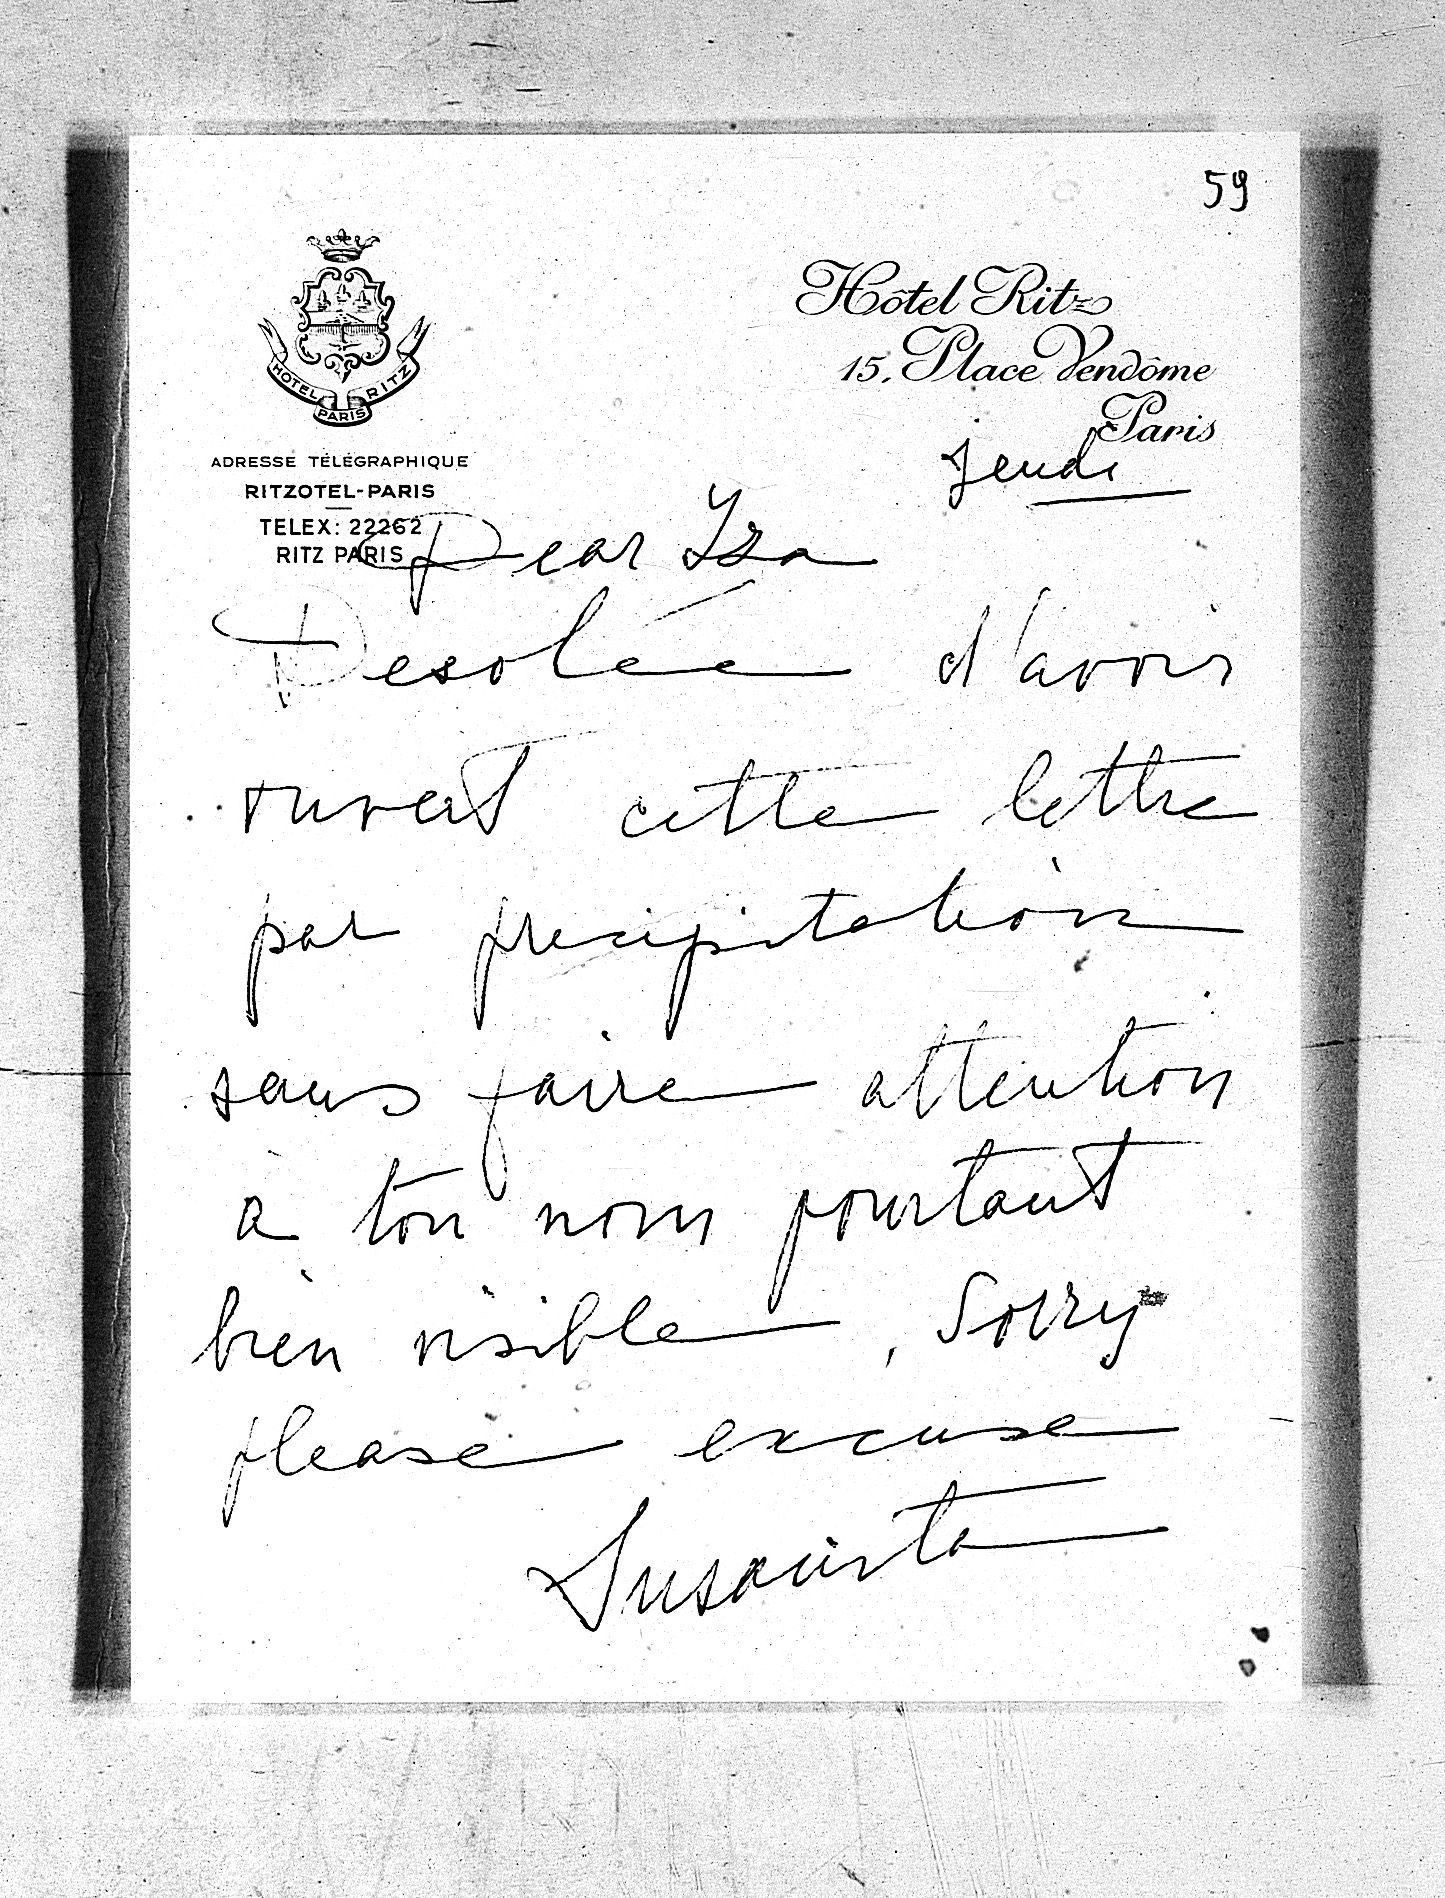 59
HÔTEL RITZ
PARIS
Hôtel Ritz
15, Place Vendôme
Paris
ADRESSE TÉLÉGRAPHIQUE
RITZOTEL-PARIS
TELEX: 22262
RITZ PARIS
Jeudi
Dear Iza
Desolée d'avoir
ouvert cette lettre
par precipitation
sans faire attention
à ton nom pourtant
bien visible, Sorry
please excuse